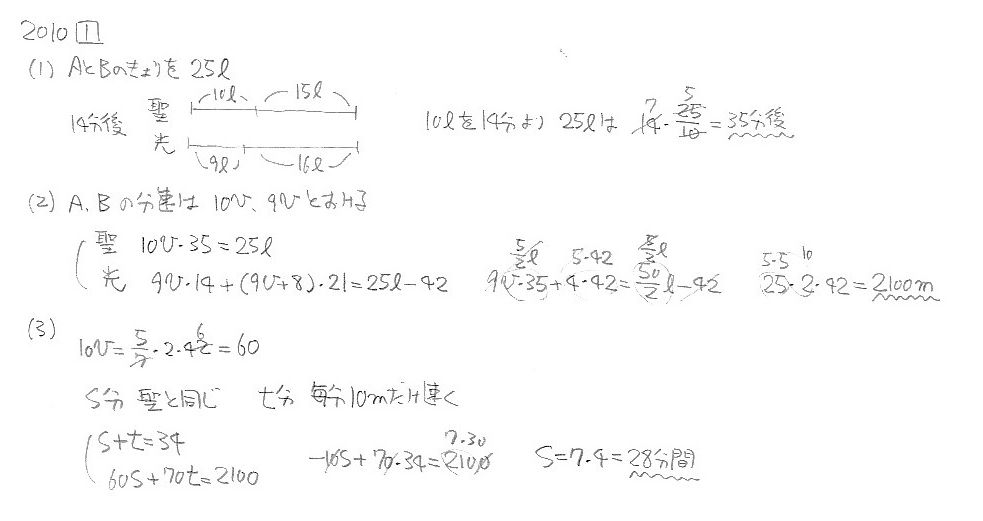 2010 1
(1) AとBのきょりを 25ℓ
10ℓ 15ℓ
14分後 聖
光
9ℓ 16ℓ
10ℓを14分より 25ℓは 14・25/10=35分後
7 5
(2) A、Bの分速は 10v、9vとおける
聖 10v・35=25ℓ
光 9v・14+(9v+8)・21=25ℓ-42
5/2ℓ 5・42 5/2ℓ
9v・35+4・42=50/2ℓ-42
5・5 10
25・2・42=2100m
(3)
10v=5/7・2・42=60
6
S分 聖と同じ t分 毎分10mだけ速く
S+t=34
60S+70t=2100
7・30
-10S+70・34=2100
S=7・4=28分間